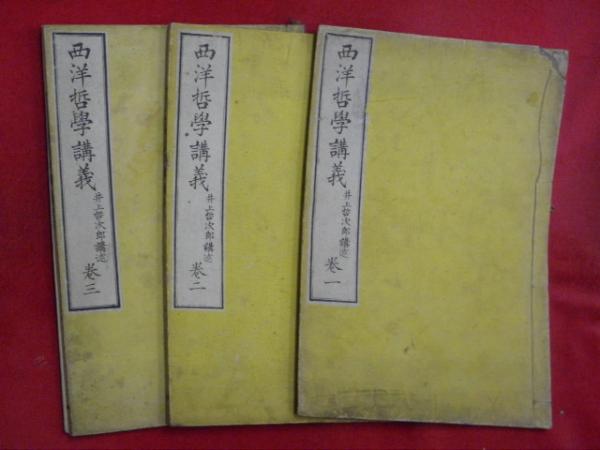 西洋哲學講義 井上哲次郎講述 卷一
西洋哲學講義 井上哲次郎講述 卷二
西洋哲學講義 井上哲次郎講述 卷三